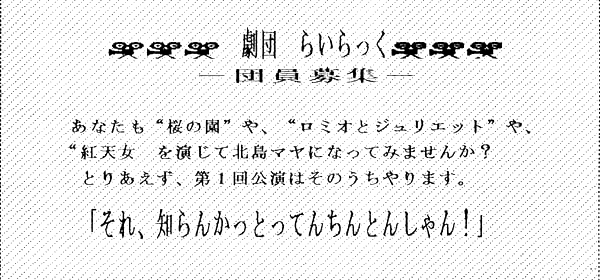 劇団 らいらっく
―団員募集―
あなたも“桜の園”や、“ロミオとジュリエット”や、
“紅天女 を演じて北島マヤになってみませんか？
とりあえず、第１回公演はそのうちやります。
「それ、知らんかっとってんちんとんしゃん！」